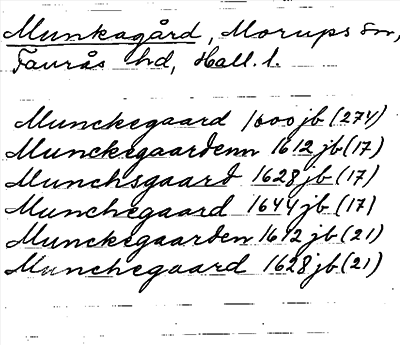 Munkagård, Morups sn,
Faurås hd, Hall. l.
Munckegaard 1600 jb (274)
Munckegaardenn 1612 jb (17)
Munchsgaard 1628 jb (17)
Munchegaard 1644 jb (17)
Munckegaarden 1612 jb (21)
Munchegaard 1628 jb (21)